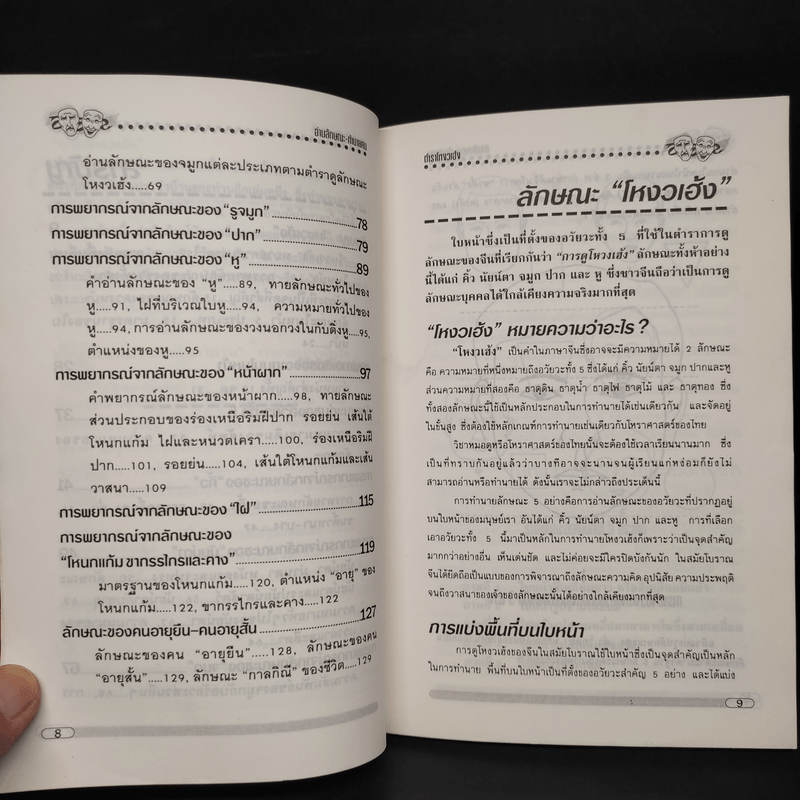 อ่านลักษณะ-ทำนายคน
อ่านลักษณะของจมูกแต่ละประเภทตามตำราดูลักษณะ
โหงวเฮ้ง.....69
การพยากรณ์จากลักษณะของ “รูจมูก” 78
การพยากรณ์จากลักษณะของ “ปาก” 79
การพยากรณ์จากลักษณะของ “หู” 89
คำอ่านลักษณะของ “หู”.....89, ทายลักษณะทั่วไปของ
หู.....91, ไฝที่บริเวณใบหู.....94, ความหมายทั่วไปของ
หู.....94, การอ่านลักษณะของวงนอกวงในกับติ่งหู.....95,
ตำแหน่งของหู.....95
การพยากรณ์จากลักษณะของ “หน้าผาก” 97
คำพยากรณ์ลักษณะของหน้าผาก.....98, ทายลักษณะ
ส่วนประกอบของร่องเหนือริมฝีปาก รอยย่น เส้นใต้
โหนกแก้ม ไฝและหนวดเครา.....100, ร่องเหนือริมฝี
ปาก.....101, รอยย่น.....104, เส้นใต้โหนกแก้มและเส้น
วาสนา.....109
การพยากรณ์จากลักษณะของ “ไฝ” 115
การพยากรณ์จากลักษณะของ
“โหนกแก้ม ขากรรไกรและคาง” 119
มาตรฐานของโหนกแก้ม.....120, ตำแหน่ง “อายุ” ของ
โหนกแก้ม.....122, ขากรรไกรและคาง.....122
ลักษณะของคนอายุยืน-คนอายุสั้น 127
ลักษณะของคน “อายุยืน”.....128, ลักษณะของคน
“อายุสั้น”.....129, ลักษณะ “กาลกิณี” ของชีวิต.....129
8
ตำราโหงวเฮ้ง
ลักษณะ “โหงวเฮ้ง”
ใบหน้าซึ่งเป็นที่ตั้งของอวัยวะทั้ง 5 ที่ใช้ในตำราการดู
ลักษณะของจีนที่เรียกกันว่า “การดูโหงวเฮ้ง” ลักษณะทั้งห้าอย่าง
นี้ได้แก่ คิ้ว นัยน์ตา จมูก ปาก และ หู ซึ่งชาวจีนถือว่าเป็นการดู
ลักษณะบุคคลได้ใกล้เคียงความจริงมากที่สุด
“โหงวเฮ้ง” หมายความว่าอะไร ?
“โหงวเฮ้ง” เป็นคำในภาษาจีนซึ่งอาจจะมีความหมายได้ 2 ลักษณะ
คือ ความหมายที่หนึ่งหมายถึงอวัยวะทั้ง 5 ซึ่งได้แก่ คิ้ว นัยน์ตา จมูก ปากและหู
ส่วนความหมายที่สองคือ ธาตุดิน ธาตุน้ำ ธาตุไฟ ธาตุไม้ และ ธาตุทอง ซึ่ง
ทั้งสองลักษณะนี้ใช้เป็นหลักประกอบในการทำนายได้เช่นเดียวกัน และจัดอยู่
ในขั้นสูง ซึ่งต้องใช้หลักเกณฑ์การทำนายเช่นเดียวกับโหราศาสตร์ของไทย
วิชาหมอดูหรือโหราศาสตร์ของไทยนั้นจะต้องใช้เวลาเรียนนานมาก ซึ่ง
เป็นที่ทราบกันอยู่แล้วว่าบางทีอาจจะนานจนผู้เรียนแก่หง่อมก็ยังไม่
สามารถอ่านหรือทำนายได้ ดังนั้นเราจะไม่กล่าวถึงประเด็นนี้
การทำนายลักษณะ 5 อย่างคือการอ่านลักษณะของอวัยวะที่ปรากฏอยู่
บนใบหน้าของมนุษย์เรา อันได้แก่ คิ้ว นัยน์ตา จมูก ปาก และ หู การที่เลือก
เอาอวัยวะทั้ง 5 นี้มาเป็นหลักในการทำนายโหงวเฮ้งก็เพราะว่าเป็นจุดสำคัญ
มากกว่าอย่างอื่น เห็นเด่นชัด และไม่ค่อยจะมีใครปิดบังกันนัก ในสมัยโบราณ
จีนได้ยึดถือเป็นแบบของการพิจารณาถึงลักษณะความคิด อุปนิสัย ความประพฤติ
จนถึงวาสนาของเจ้าของลักษณะนั้นได้อย่างใกล้เคียงมากที่สุด
การแบ่งพื้นที่บนใบหน้า
การดูโหงวเฮ้งของจีนในสมัยโบราณใช้ใบหน้าซึ่งเป็นจุดสำคัญเป็นหลัก
ในการทำนาย พื้นที่บนใบหน้าเป็นที่ตั้งของอวัยวะสำคัญ 5 อย่าง และได้แบ่ง
9